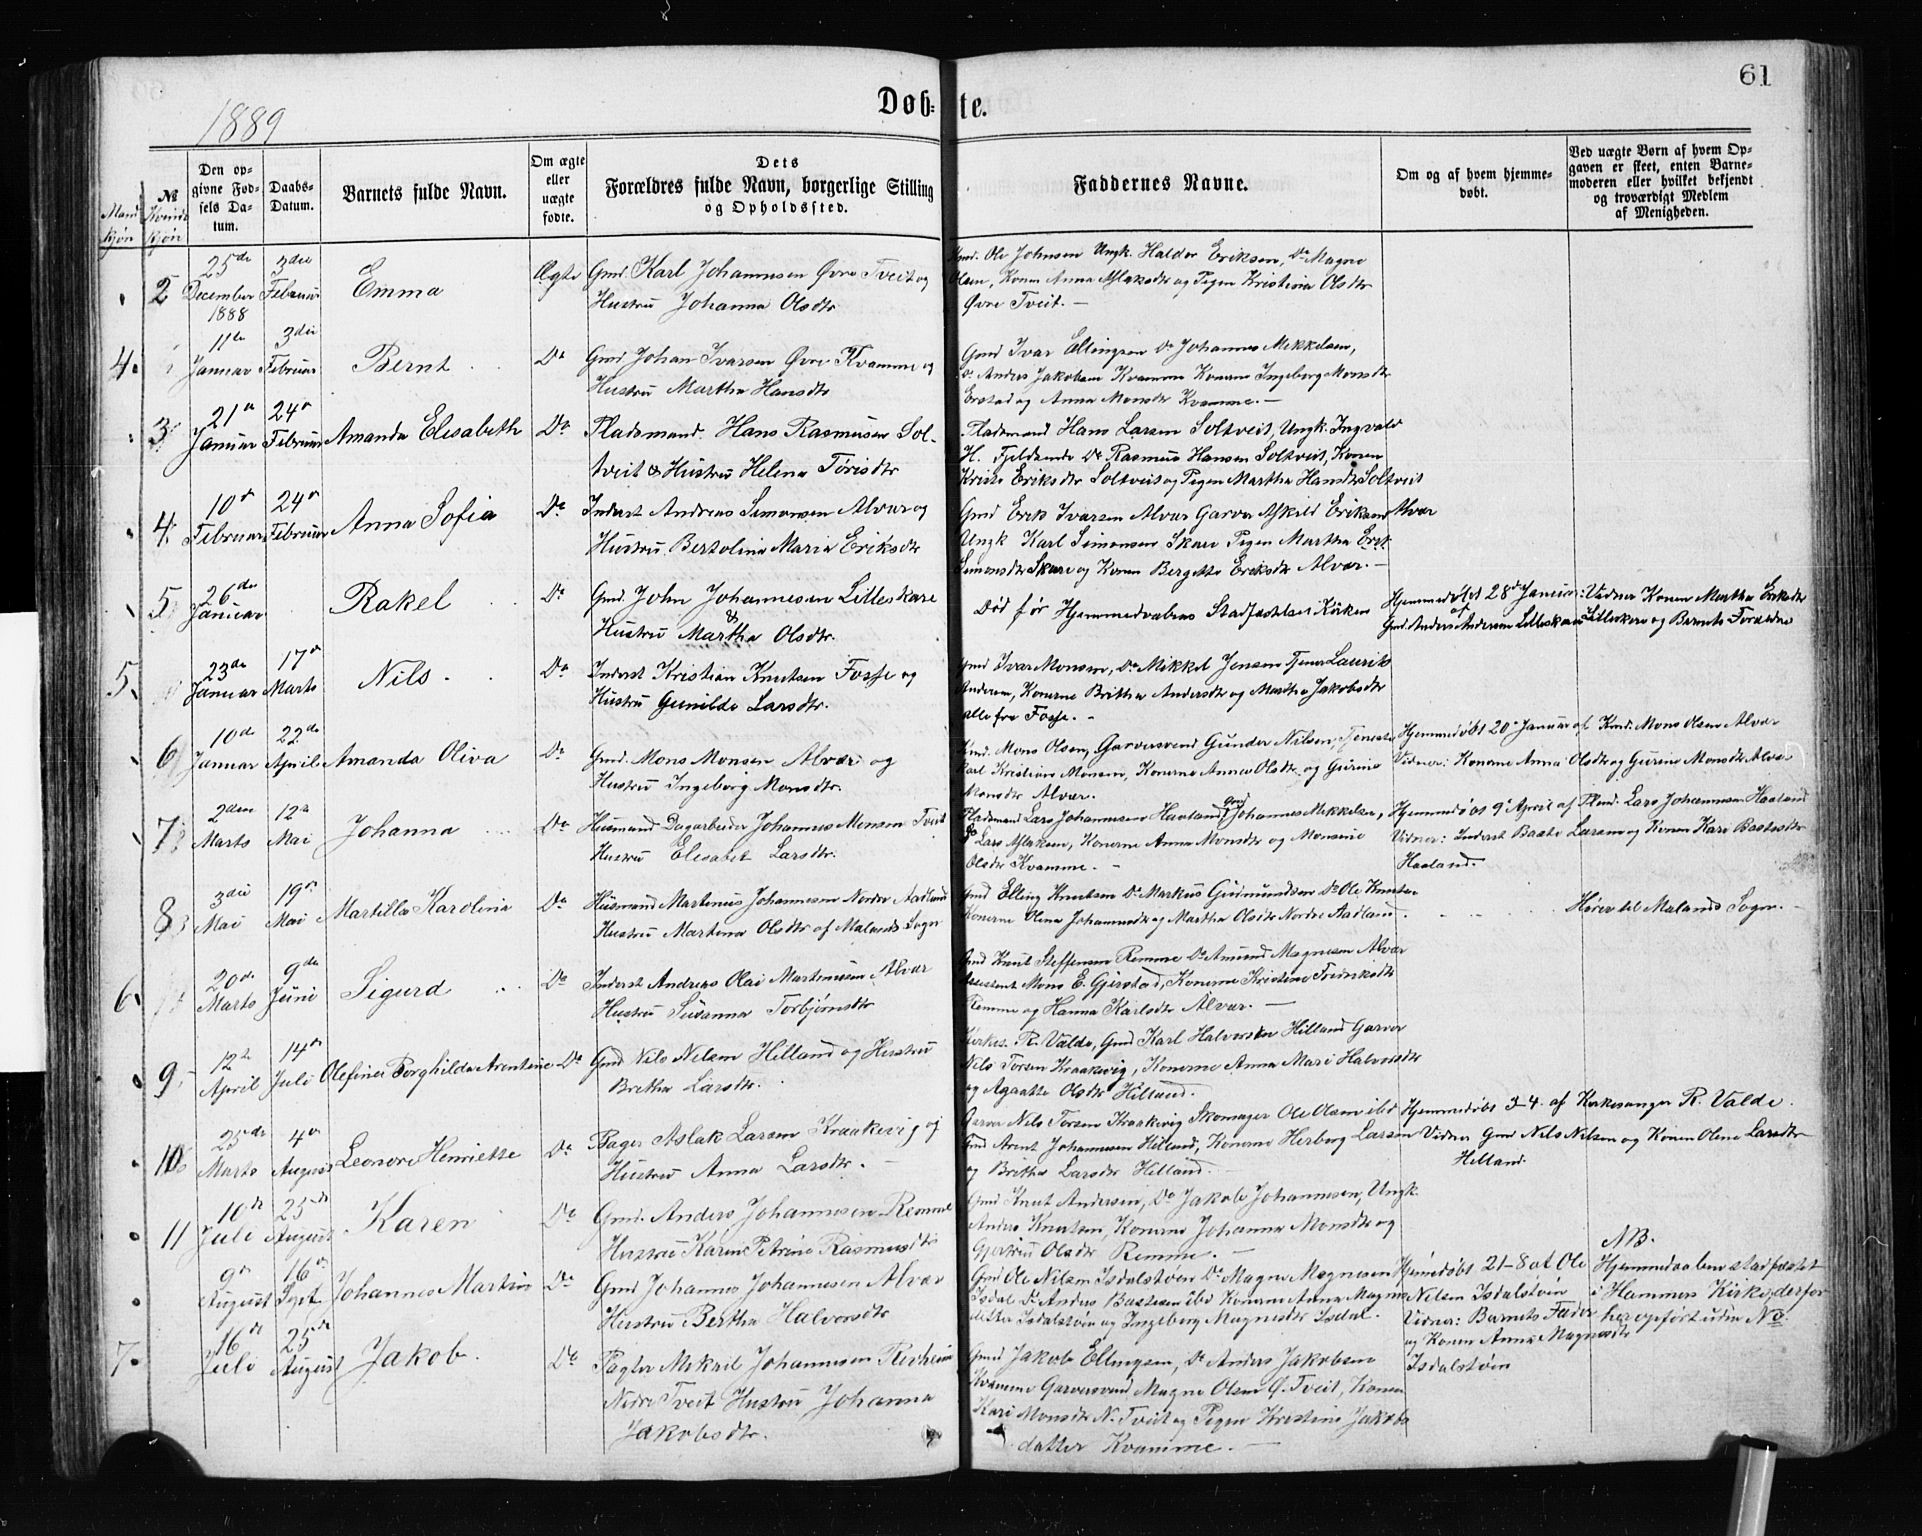 61
1889
Døb-te.
Mand kjøn
№ Kvinde kjøn
Den opgivne Fødsels Datum.
Daabs-Datum.
Barnets fulde Navn.
Om ægte eller uægte fødte.
Dets Forældres fulde Navn, borgerlige Stilling og Opholdssted.
Faddernes Navne.
Om og af hvem hjemmedøbt.
Ved uægte Børn af hvem Opgaven er skeet, enten Barnemoderen eller hvilket bekjendt og troværdigt Medlem af Menigheden.
2 25de December 1888 3die Februar Emma Ægte
Gmd. Karl Johannesen Øvre Tveit og
Hustru Johanna Olsdtr
Gmd. Ole Johnsen Ungk. Haldor Eriksen, Do Magne
Olsen, Konen Anna Aslaksdtr og Pigen Kristina Olsdtr
Øvre Tveit.
4. 11te Januar 3die Februar Bernt Do
Gmd. Johan Ivarsen Øvre Kvamme og
Hustru Martha Hansdtr
Gmd Ivar Ellingsen Do Johannes Mikkelsen,
Do Anders Jakobsen Kvamme Konerne Ingeborg Monsdtr
og Anna Monsdtr Kvamme.
3 21de Januar 24de Februar Amanda Elisabeth Do
Pladsmand. Hans Rasmusen Sol-
tveit & Hustru Helena Tørisdtr
Pladsmand Hans Larsen Soltveit, Ungk. Ingvald
H. Fjeldsende Do Rasmus Hansen Soltveit, Konen
Kristi Eriksdtr Soltveit og Pigen Martha Hansdtr Soltveit
4 10de Februar 24de Februar Anna Sofia Do
Inderst Andreas Simonsen Alver og
Hustru Bertolina Maria Eriksdtr
Gmd Erik Ivarsen Alver Garver Askild Eriksen Alver
Ungk Karl Simonsen Skare Pigen Martha Erik
Simonsdtr Skare og Konen Bergitte Eriksdtr Alver.
5 26de Januar Rakel Do
Gmd. John Johannesen Litleskare
& Hustru Martha Olsdtr.
Død før Hjemmedaabens Stadfæstelse i Kirken
Hjemmedøbt 28de Januar af
Gmd. Anders Andersen Litleskare
Vidner Konen Martha Eriksdtr
Litleskare og Barnets Forældre
5. 23de Januar 17de Marts Nils Do
Inderst Kristian Knutsen Fosse og
Hustru Gunilde Larsdtr.
Gmd Ivar Monsen, Do Mikkel Jensen Tjener Laurits
Andersen, Konerne Britha Andersdtr og Martha Jakobsdtr
alle fra Fosse.
6 10de Januar 22de April Amanda Oliva Do
Gmd. Mons Monsen Alver og
Hustru Ingeborg Monsdtr.
Kmd. Mons Olsen, Garversvend Gunder Nilsen, Tjeneste
karl Kristian Monsen, Konerne Anna Olsdtr og Gurine
Monsdtr Alver.
Hjemmedøbt 20de Januar af Kmd. Mons Olsen Alver
Vidner: Konerne Anna Olsdtr og Gurine Monsdtr Alver
7 2den Marts 12te Mai Johanna Do
Husmand Dagarbeider Johannes Monsen Tveit
Hustru Elisabet Larsdtr.
Pladsmand Lars Johannesen Haaland Gmd Johannes Mikkelsen,
Do Lars Aslaksen, Konerne Anna Monsdtr og Monsine
Olsdtr Kvamme.
Hjemmedøbt 9de April af Plmd. Lars Johannesen Haaland
Vidner: Inderst Baste Larsen og Konen Kari Bastesdtr
Haaland.
8 3die Mai 19de Mai Martilla Karolina Do
Husmand Martinus Johannesen Nordre Aadland
Hustru Martina Olsdtr af Mælands Sogn
Gmd Elling Knutsen Do Markus Gudmundsen Do Ole Knutsen
Konerne Olina Johannesdtr og Martha Olsdtr Nordre Aadland.
Hører til Mælands Sogn.
6. 20de Marts 9de Juni Sigurd Do
Inderst Andreas Olai Martinusen Alver
Hustru Susanna Torbjørnsdtr
Gmd Knut Steffensen Remme Do Amund Magnesen Alver
Assistent Mons E. Gjerstad, Konerne Kristine
Remme og Hanna Karlsdtr Alver.
9 12te April 14de Juli Olefine Borghilda Arentine Do
Gmd Nils Nilsen Hilland og Hustru
Britha Larsdtr.
Kirkes. R. Valde, Gmd Karl Halvorsen Hilland Garver
Nils Torsen Kraakevig, Konerne Anna Mari Halvorsdtr
og Agaathe Olsdtr Hilland.
10 25de Marts 4de August Leonore Henriette Do
Bager Aslak Larsen Kraakevig og
Hustru Anna Larsdtr.
Garver Nils Torsen Kraakvig Skomager Ole Olsen ibd
Gmd Arent Johannesen Hilland, Konerne Herborg Larsen
og Britha Larsdtr Hilland.
Hjemmedøbt 3-4. af Kirkesanger R. Valde.
Vidner Gmd Nils Nilsen og Konen Olene Larsdtr
Hilland.
11 10de Juli 25de August Karen Do
Gmd. Anders Johannesen Remme
Hustru Karine Petrine Rasmusdtr
Gmd Knut Andersen, Do Jakob Johannesen, Ungk.
Anders Knutsen, Konerne Johanna Monsdtr og
Gjertrud Olsdtr Remme.
9de August 16de Sept. Johannes Martin Do
Gmd Johannes Johannesen Alver
Hustru Bertha Halvorsdtr
Gmd Ole Nilsen Isdalstøen Do Magne Magnesen
Isdal Do Anders Bastesen ibd Konerne Anna Magnes
datter Isdalstøen og Ingeborg Magnesdtr Isdal.
Hjemedøbt 21-8 af Ole
Nilsen Isdalstøen
Vidner: Barnets Fader
og Konen Anna Magnesdtr
Isdalstøen
NB.
Hjemmedaaben stadfæstet
i Hammers Kirke, derfor
her opført uden No.
7. 16de Juli 25de August Jakob Do
Pagter Mikkel Johannesen Revheim
Nedre Tveit Hustru Johanna
Jakobsdtr.
Gmd Jakob Ellingsen, Do Anders Jakobsen
Kvamme Garversvend Magne Olsen Ø. Tveit, Konen
Kari Monsdtr N. Tveit og Pigen Kristine Jakobs
datter Kvamme.